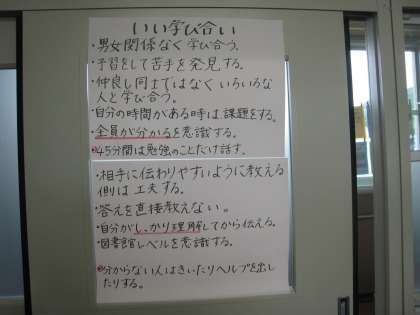 いい学び合い
・男女関係なく学び合う。
・予習をして苦手を発見する。
・仲良し同士ではなくいろいろな
人と学び合う。
・自分の時間がある時は課題をする。
・全員が分かるを意識する。
・45分間は勉強のことだけ話す。
・相手に伝わりやすいように教える
側は工夫する。
・答えを直接教えない。
・自分がしっかり理解してから伝える。
・図書館レベルを意識する。
・分からない人はきいたりヘルプを出し
たりする。